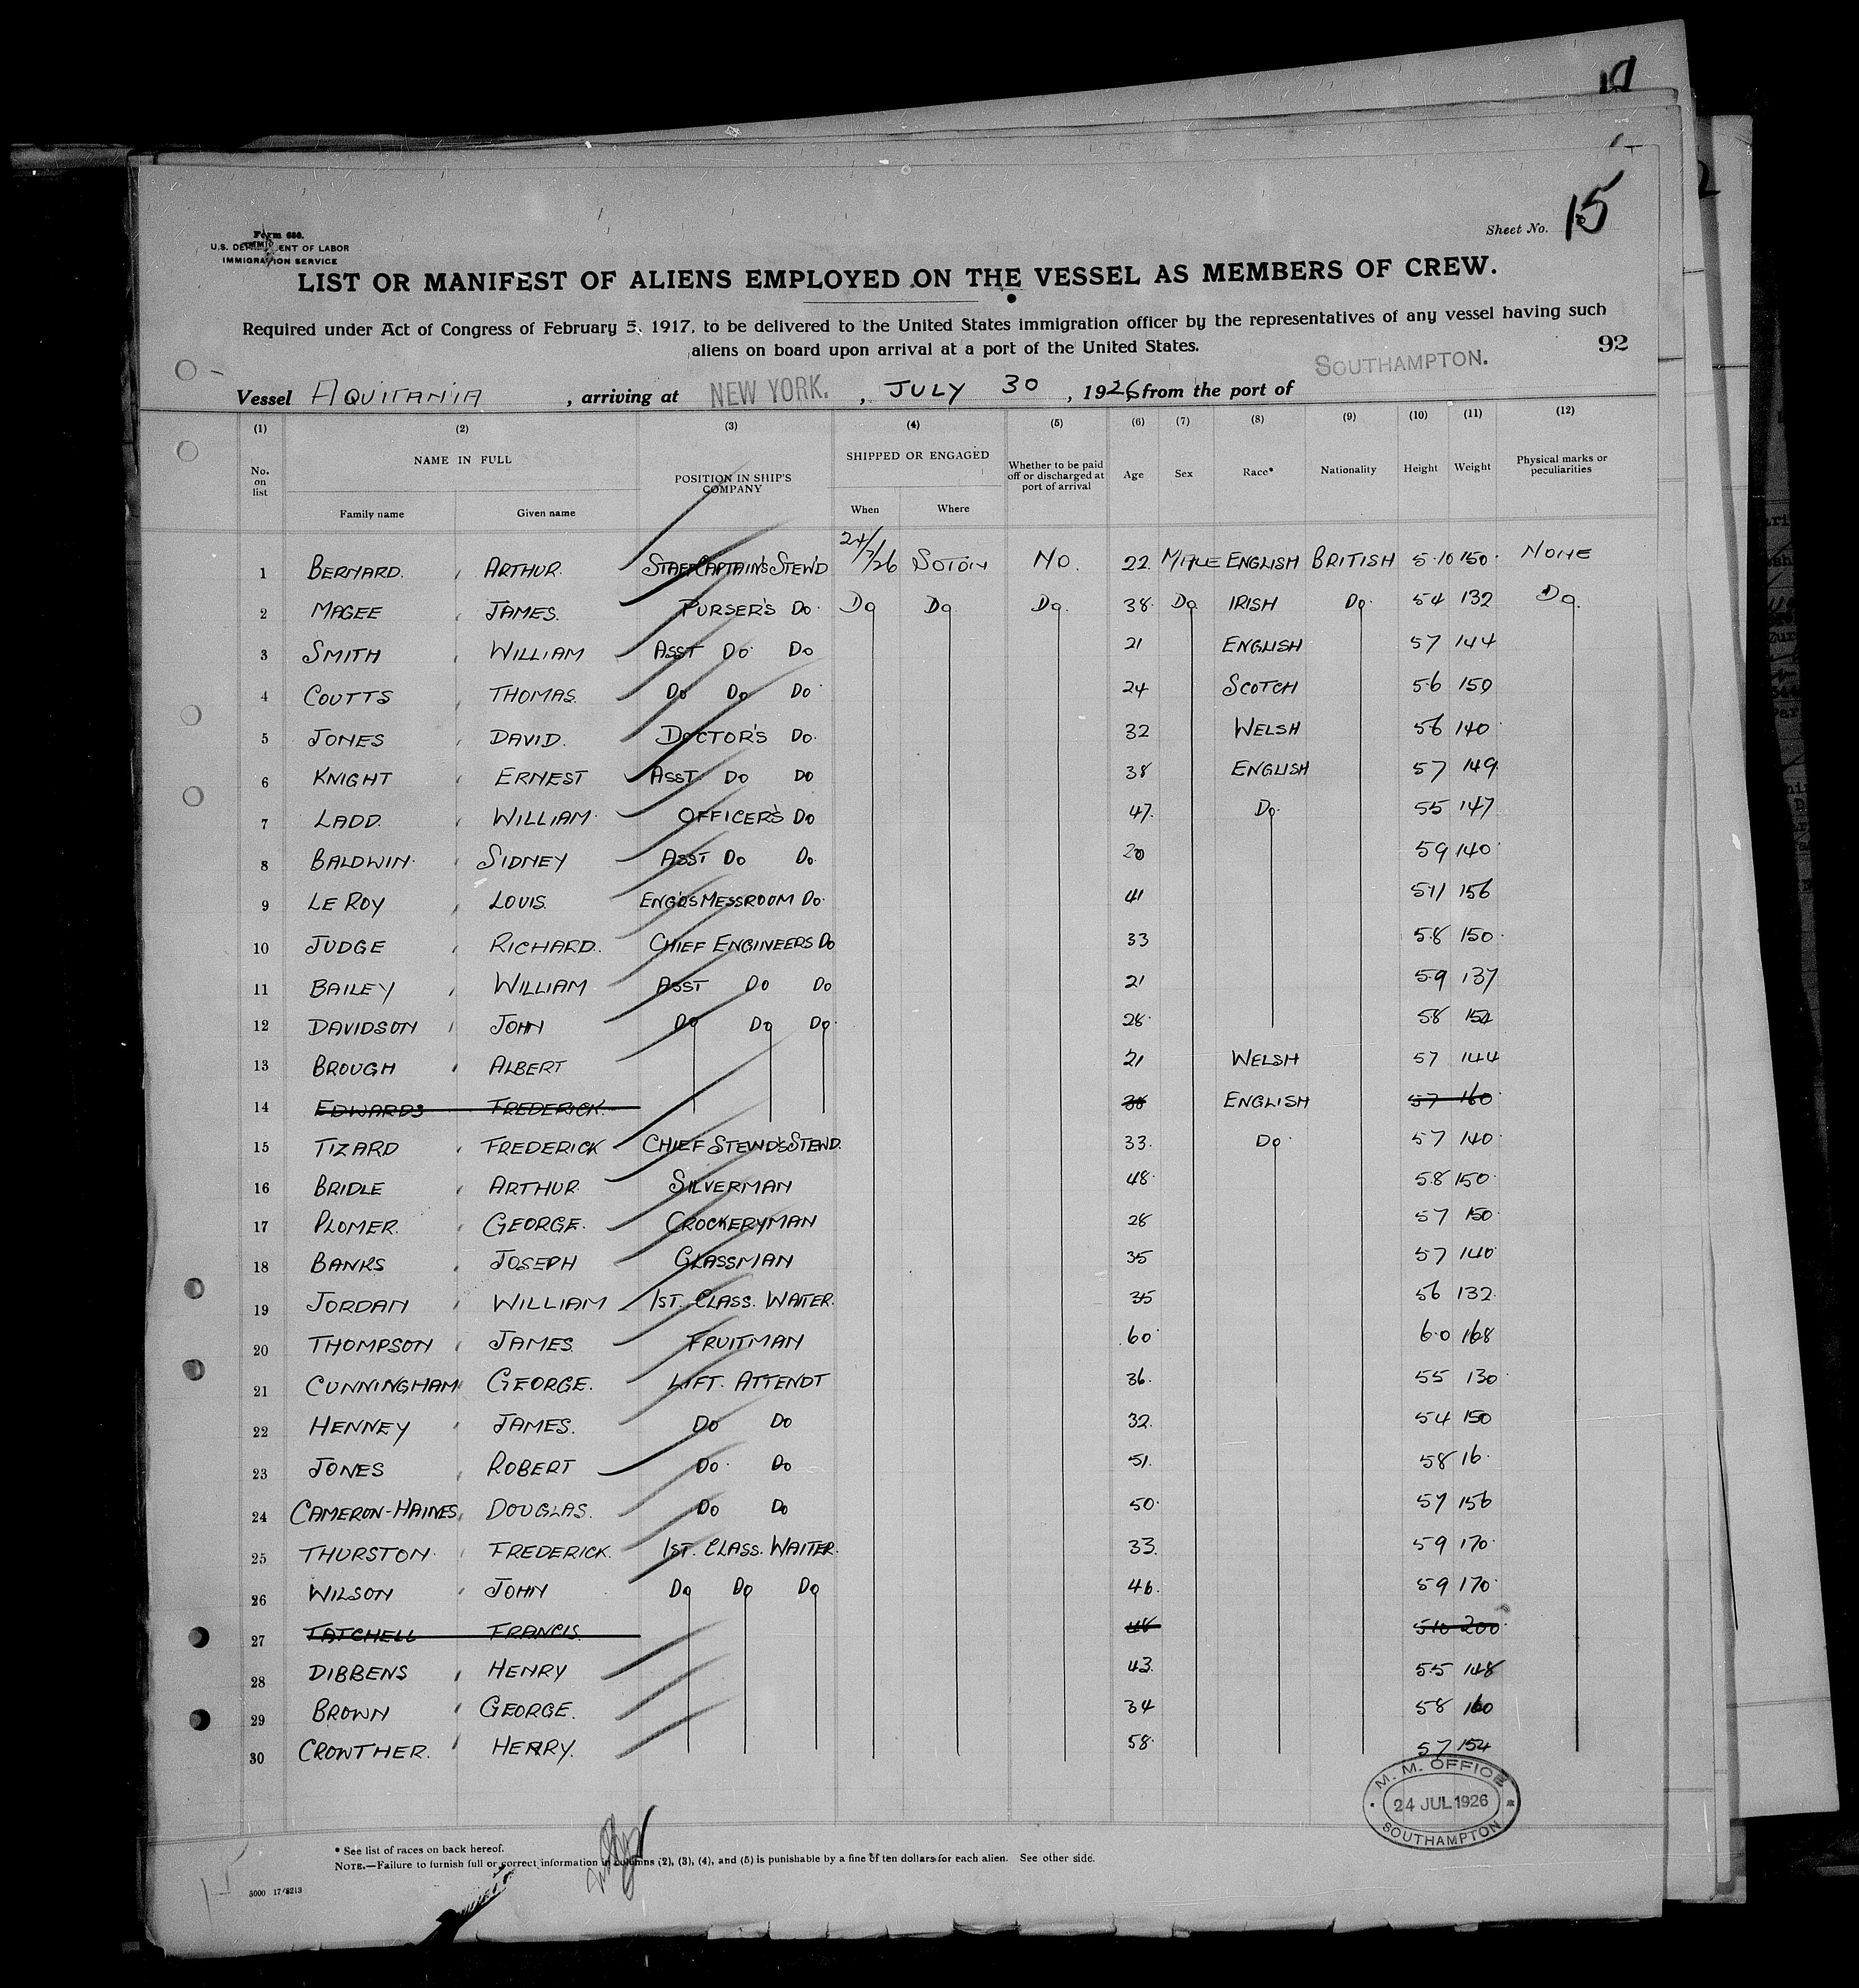 Form 686.
U.S. DEPARTMENT OF LABOR
IMMIGRATION SERVICE
Sheet No. 15
LIST OR MANIFEST OF ALIENS EMPLOYED ON THE VESSEL AS MEMBERS OF CREW.
Required under Act of Congress of February 5, 1917, to be delivered to the United States immigration officer by the representatives of any vessel having such
aliens on board upon arrival at a port of the United States.
92
Vessel AQUITANIA, arriving at NEW YORK., JULY 30, 1926 from the port of SOUTHAMPTON.
(1) (2) (3) (4) (5) (6) (7) (8) (9) (10) (11) (12)
No. on list NAME IN FULL POSITION IN SHIP'S COMPANY SHIPPED OR ENGAGED Whether to be paid off or discharged at port of arrival Age Sex Race* Nationality Height Weight Physical marks or peculiarities
Family name Given name When Where
1 BERNARD. ARTHUR. STAFF CAPTAIN'S STEWD 24/7/26 SOTON NO. 22. MALE ENGLISH BRITISH 5.10 150. NONE
2 MAGEE JAMES. PURSER'S DO. DO DO DO. 38. DO IRISH DO. 54 132 DO.
3 SMITH WILLIAM ASST DO. DO 21 ENGLISH 57 144
4 COUTTS THOMAS. DO DO DO. 24 SCOTCH 5.6 150
5 JONES DAVID. DOCTOR'S DO. 32 WELSH 56 140
6 KNIGHT ERNEST ASST. DO DO 38 ENGLISH 57 149
7 LADD. WILLIAM. OFFICER'S DO 47. DO. 55 147
8 BALDWIN. SIDNEY ASST DO DO. 20 59 140
9 LE ROY LOUIS. ENGRS MESSROOM DO. 41 5.11 156
10 JUDGE RICHARD. CHIEF ENGINEERS DO 33 5.8 150.
11 BAILEY WILLIAM ASST DO DO 21 5.9 137
12 DAVIDSON JOHN DO DO DO. 28. 58 154
13 BROUGH ALBERT 21 WELSH 57 144
14 EDWARDS FREDERICK. 38 ENGLISH 57 160
15 TIZARD FREDERICK CHIEF STEWD'S STEWD. 33. DO. 57 140.
16 BRIDLE ARTHUR. SILVERMAN 48. 5.8 150.
17 PLOMER. GEORGE. CROCKERYMAN 28 57 150.
18 BANKS JOSEPH GLASSMAN 35 57 140
19 JORDAN WILLIAM 1ST. CLASS. WAITER. 35 56 132.
20 THOMPSON JAMES. FRUITMAN 60 6.0 168
21 CUNNINGHAM GEORGE. LIFT. ATTENDT 36. 55 130.
22 HENNEY JAMES. DO DO 32. 54 150
23 JONES ROBERT DO. DO 51. 58 16.
24 CAMERON-HAINES DOUGLAS. DO DO 50. 57 156
25 THURSTON. FREDERICK. 1ST. CLASS. WAITER. 33. 59 170.
26 WILSON JOHN DO DO DO 46. 59 170.
27 TATCHELL FRANCIS. 48 510 200.
28 DIBBENS HENRY 43. 5.5 148
29 BROWN GEORGE. 34 58 160
30 CROWTHER. HENRY. 58. 57 154
M. M. OFFICE
24 JUL 1926
SOUTHAMPTON
* See list of races on back hereof.
NOTE.—Failure to furnish full or correct information in columns (2), (3), (4), and (5) is punishable by a fine of ten dollars for each alien. See other side.
5000 17/8213